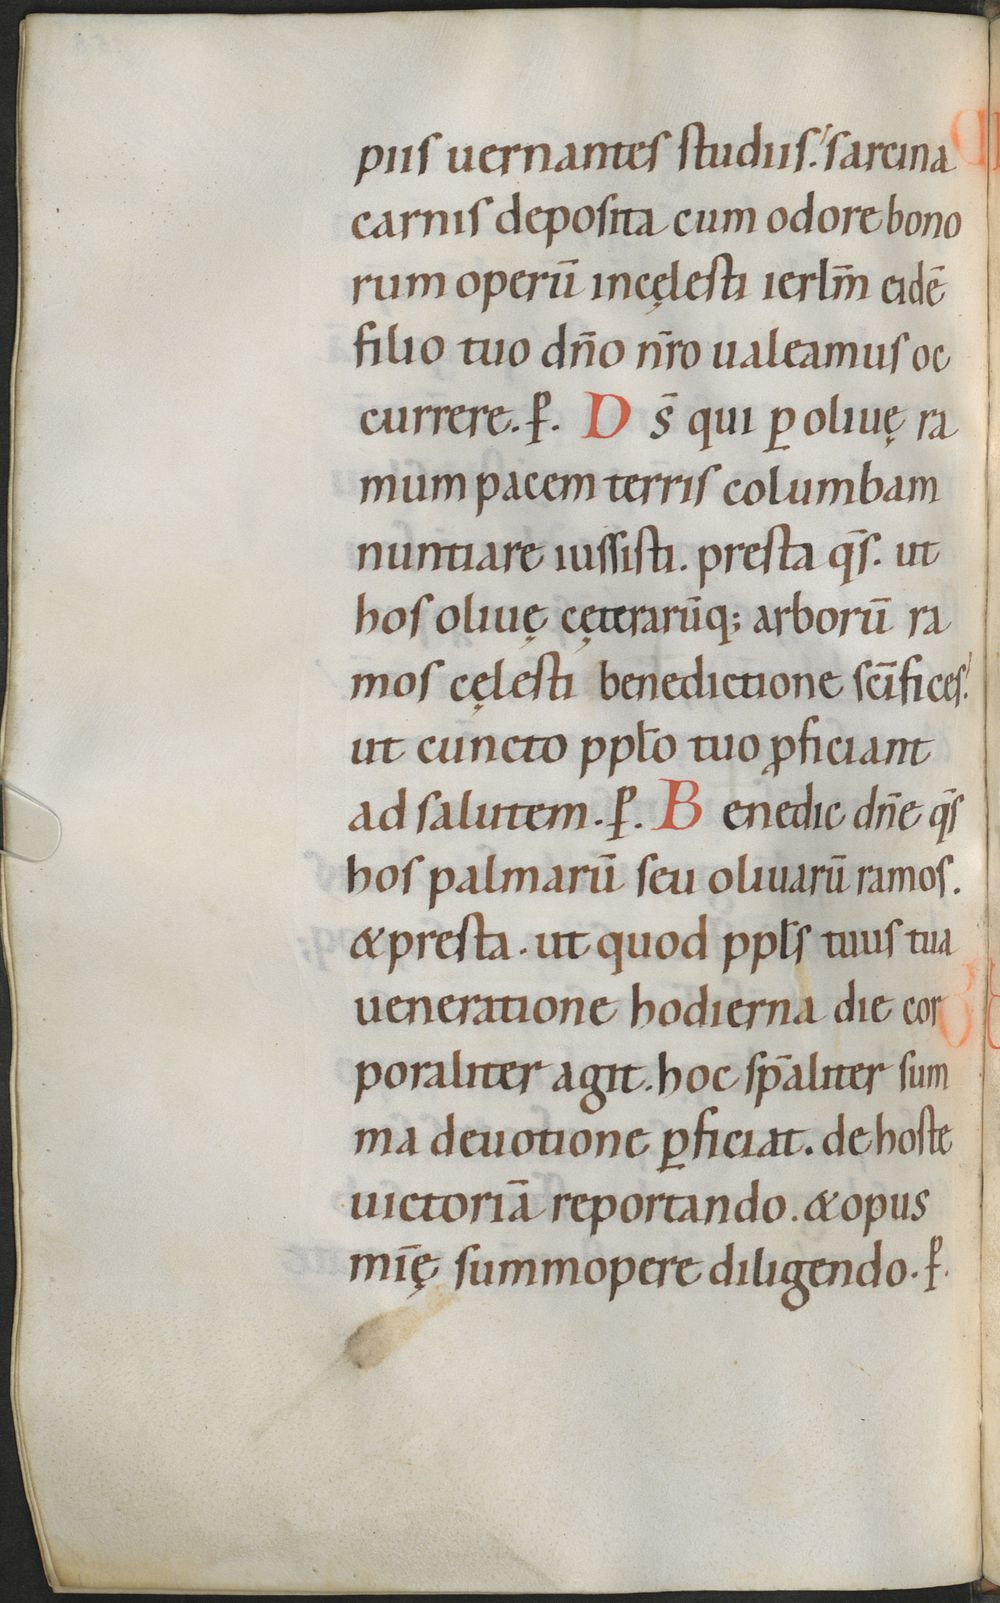 piis uernantes studiis. sarcina
carnis deposita cum odore bono
rum operū incęlesti ierlm̄ eidē
filio tuo dn̄o nr̄o ualeamus oc
currere. ꝑ. D s̄ qui ꝑ oliuę ra
mum pacem terris columbam
nuntiare iussisti. presta qs̄. ut
hos oliuę cęterarūq; arborū ra
mos cęlesti benedictione scīfices.
ut cūncto ppło tuo ꝓficiant
ad salutem. ꝑ. B enedic dn̄e qs̄
hos palmarū seu oliuarū ramos.
& presta. ut quod ppłs tuus tua
ueneratione hodierna die cor
poraliter agit. hoc sp̄aliter sum
ma deuotione ꝑficiat. de hoste
uictoriā reportando. & opus
mīę summopere diligendo. ꝑ.